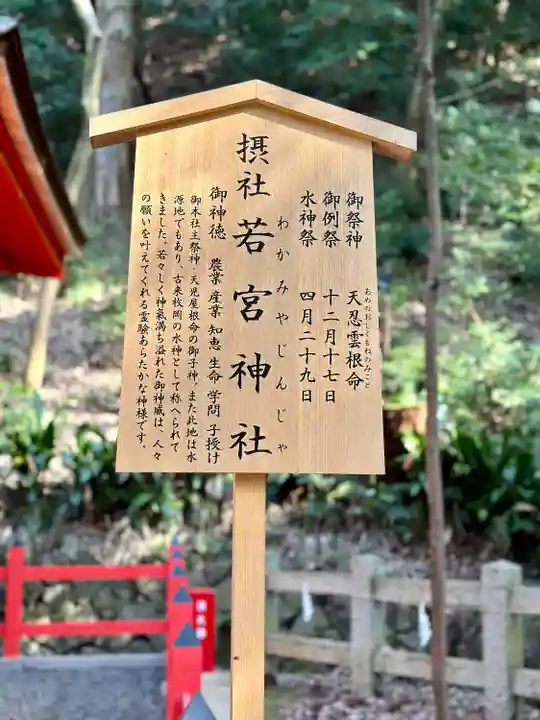 御祭神 天忍雲根命
あめのおしくもねのみこと
御例祭 十二月十七日
水神祭 四月二十九日
摂社 若宮神社
わかみやじんじゃ
御神徳 農業 産業 知恵 生命 学問 子授け
御本社主祭神・天児屋根命の御子神。また此地は水
源地でもあり、古来枚岡の水神として称へられて
きました。若々しく神氣満ち溢れた御神威は、人々
の願いを叶えてくれる霊験あらたかな神様です。